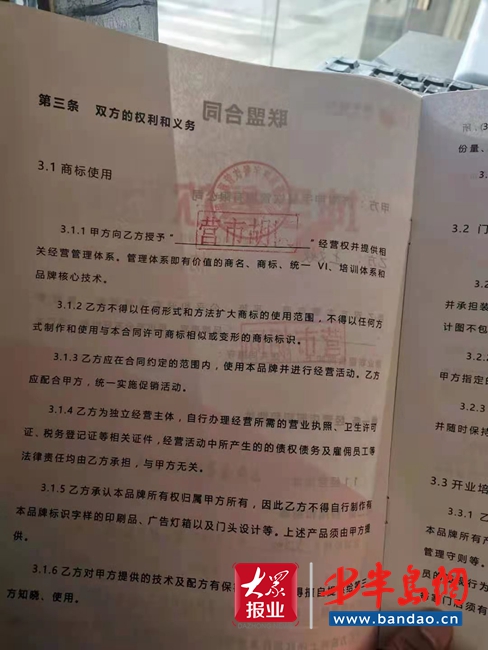 联盟合同
第三条 双方的权利和义务
3.1 商标使用
3.1.1 甲方向乙方授予“
”经营权并提供相
关经营管理体系。管理体系即有价值的商名、商标、统一 VI、培训体系和
品牌核心技术。
3.1.2 乙方不得以任何形式和方法扩大商标的使用范围，不得以任何方
式制作和使用与本合同许可商标相似或变形的商标标识。
3.1.3 乙方应在合同约定的范围内，使用本品牌并进行经营活动。乙方
应配合甲方，统一实施促销活动。
3.1.4 乙方为独立经营主体，自行办理经营所需的营业执照、卫生许可
证、税务登记证等相关证件，经营活动中所产生的的债权债务及雇佣员工等
法律责任均由乙方承担，与甲方无关。
3.1.5 乙方承认本品牌所有权归属甲方所有，因此乙方不得自行制作有
本品牌标识字样的印刷品、广告灯箱以及门头设计等。上述产品须由甲方提
供。
3.1.6 乙方对甲方提供的技术及配方有保
得擅自提供给第三
方知晓、使用。
份量、
3.2 门
3.2.
并承担装
计图不包
3.2.
甲方指定的
3.2.3
并随时保持
3.3 开业培
3.3.1
本品牌所有产
管理守则等。
大众
报业
半岛网
www.bandao.cn